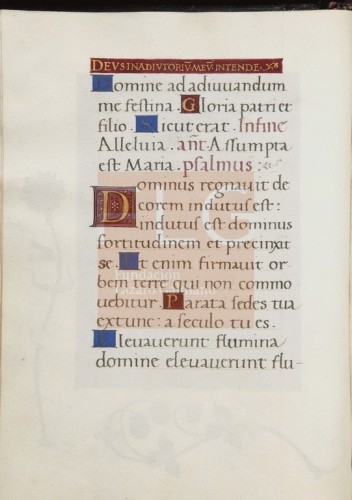 DEVS IN ADIVTORIV̄ MEV̄ INTENDE
Domine ad adiuuandum
me festina. Gloria patri et
filio. Sicut erat. In fine
Alleluia. an̄t Assumpta
est Maria. psalmus:
Dominus regnauit de
corem indutus est:
indutus est dominus
fortitudinem et precinxit
se. Et enim firmauit or-
bem terre qui non commo
uebitur. Parata sedes tua
ex tunc: a seculo tu es.
Eleuauerunt flumina
domine eleuauerunt flu-
LG
Fundación